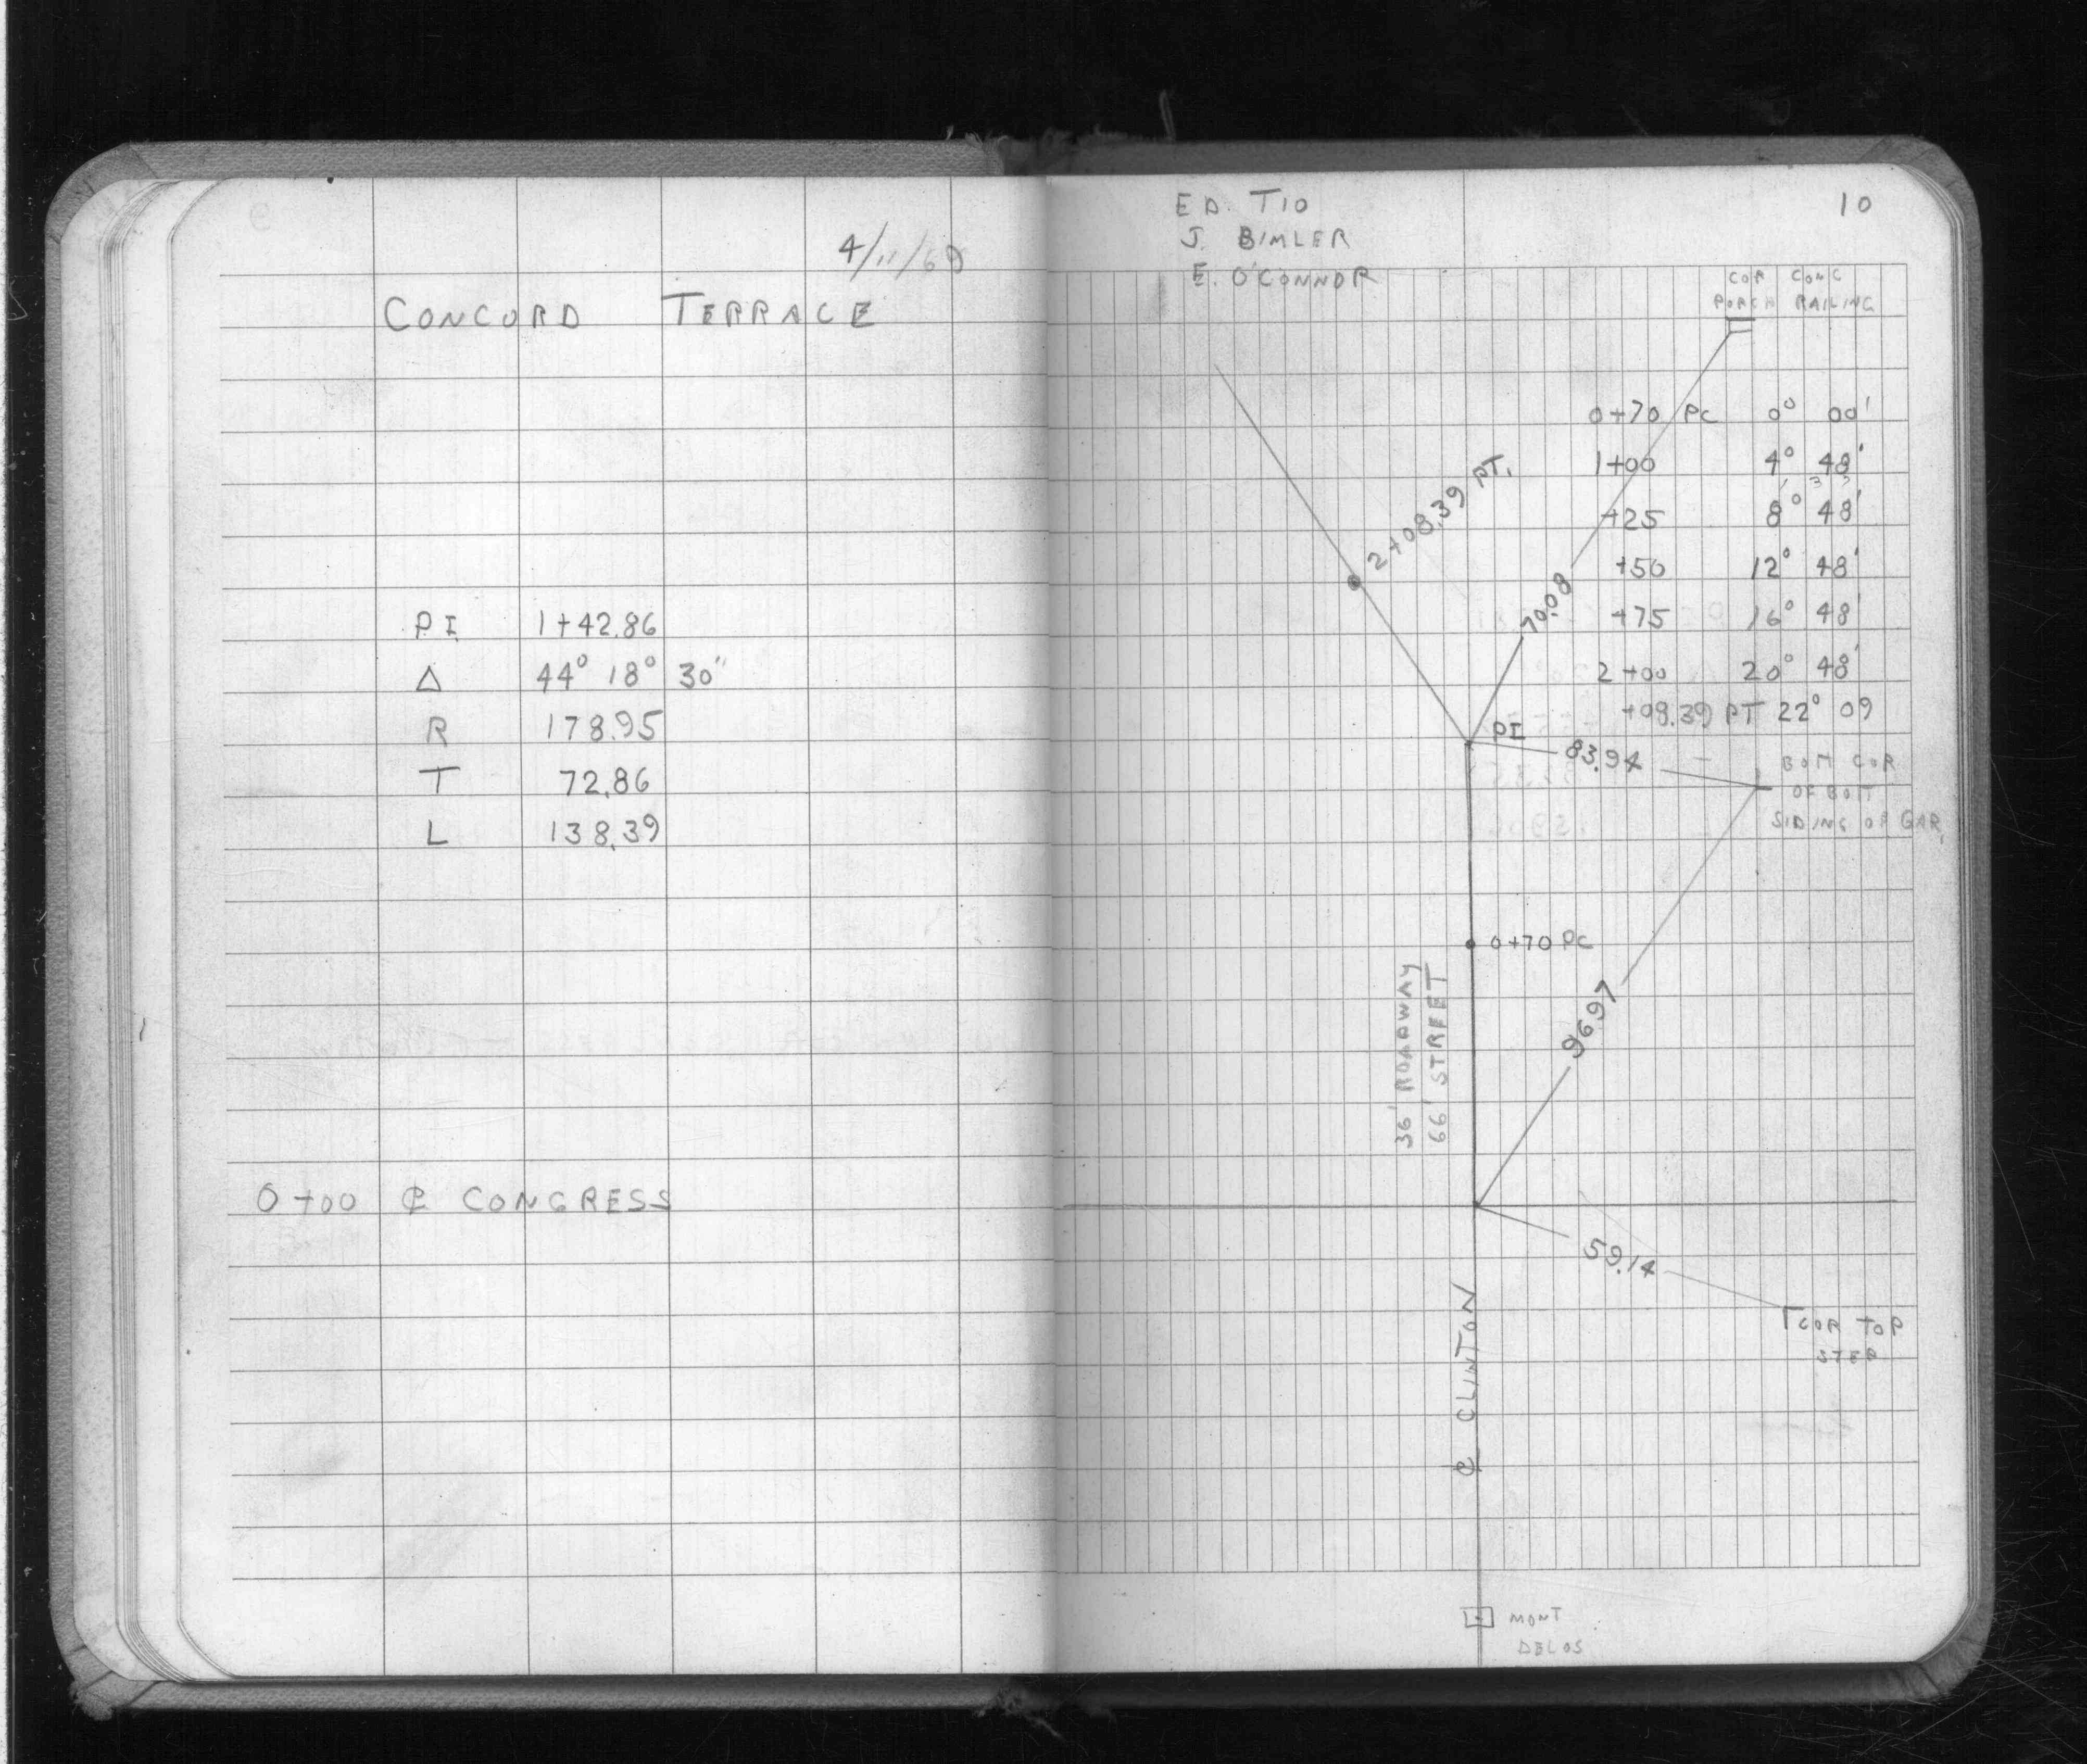 4/11/69
CONCORD TERRACE
PI 1+42.86
Δ 44° 18° 30"
R 178.95
T 72.86
L 138.39
0+00 ℄ CONGRESS
ED. TIO
J. BIMLER
E. O'CONNOR
10
COR CONC
PORCH RAILING
0+70 PC 0° 00'
1+00 4° 48'
+25 8° 48'
+50 12° 48'
+75 16° 48'
2+00 20° 48'
+08.39 PT 22° 09
2+08.39 PT.
70.08
PI
83.94
BOTT COR
OF BOTT
SIDING OF GAR.
0+70 PC
36' ROADWAY
66' STREET
96.97
59.14
COR TOP
STEP
℄ CLINTON
MONT
DELOS